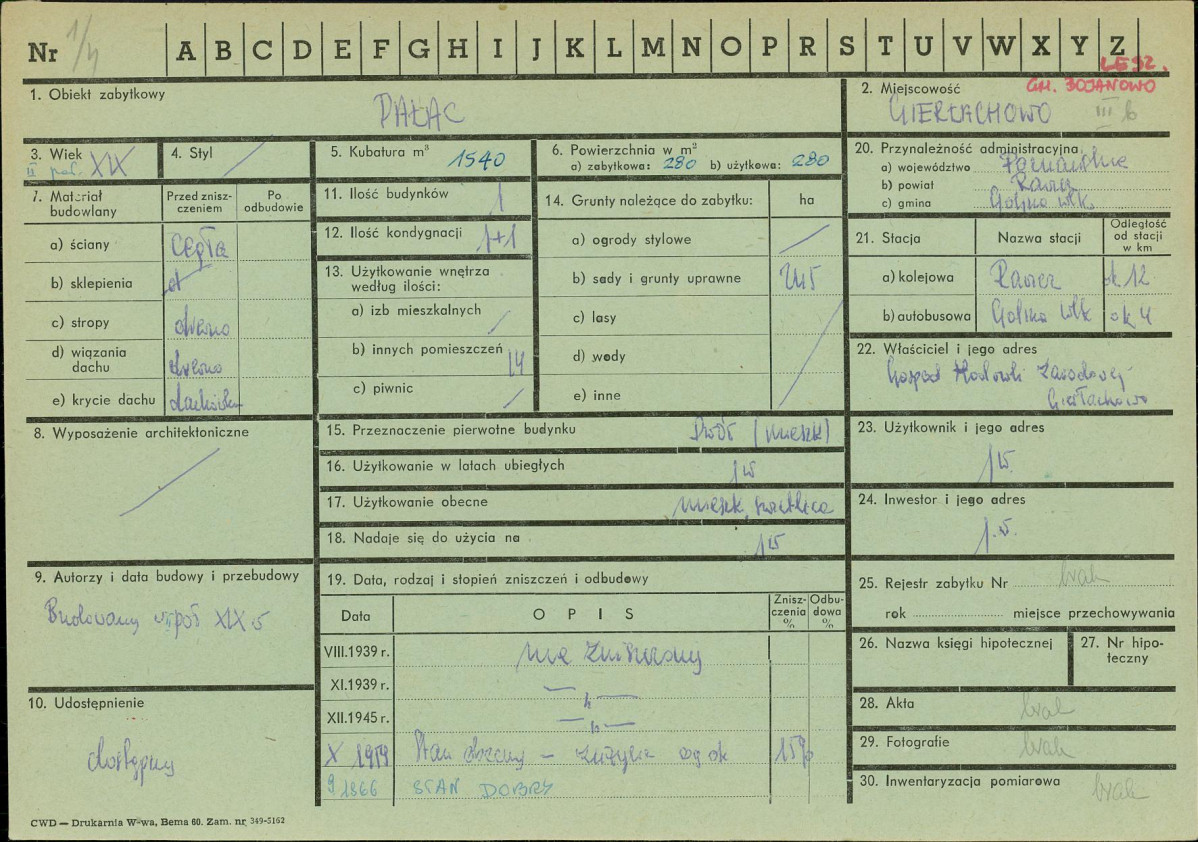 Nr 1/4 A B C D E F G H I J K L M N O P R S T U V W X Y Z
LESZ.
GM. BOJANOWO
1. Obiekt zabytkowy
PAŁAC
2. Miejscowość
GIERŁACHOWO III b
3. Wiek XIX
II poł.
4. Styl
5. Kubatura m³ 1540
6. Powierzchnia w m²
a) zabytkowa: 280 b) użytkowa: 280
7. Materiał budowlany
Przed zniszczeniem
Po odbudowie
a) ściany cegła
b) sklepienia
c) stropy drewno
d) wiązania dachu drewno
e) krycie dachu dachówka
8. Wyposażenie architektoniczne
9. Autorzy i data budowy i przebudowy
Budowany II poł XIX w
10. Udostępnienie
dostępny
11. Ilość budynków 1
12. Ilość kondygnacji 1+1
13. Użytkowanie wnętrza według ilości:
a) izb mieszkalnych
b) innych pomieszczeń 14
c) piwnic
14. Grunty należące do zabytku: ha
a) ogrody stylowe
b) sady i grunty uprawne 245
c) lasy
d) wody
e) inne
15. Przeznaczenie pierwotne budynku Dwór (mieszk)
16. Użytkowanie w latach ubiegłych jw
17. Użytkowanie obecne mieszk, świetlica
18. Nadaje się do użycia na jw
19. Data, rodzaj i stopień zniszczeń i odbudowy
Data OPIS Zniszczenia % Odbudowa %
VIII.1939 r. nie zniszczony
XI.1939 r. — " —
XII.1945 r. — " —
X 1959 Stan obecny – zużycie og ok 15%
9 1966 STAN DOBRY
20. Przynależność administracyjna
a) województwo Poznańskie
b) powiat Rawicz
c) gmina Golina Wlk
21. Stacja Nazwa stacji Odległość od stacji w km
a) kolejowa Rawicz ok 12
b) autobusowa Golina Wlk ok 4
22. Właściciel i jego adres
Gospod Hodowli Zarodowej
Gierłachowo
23. Użytkownik i jego adres
jw.
24. Inwestor i jego adres
j.w.
25. Rejestr zabytku Nr brak
rok miejsce przechowywania
26. Nazwa księgi hipotecznej
27. Nr hipoteczny
28. Akta brak
29. Fotografie brak
30. Inwentaryzacja pomiarowa brak
CWD — Drukarnia W-wa, Bema 60. Zam. nr 349-5162